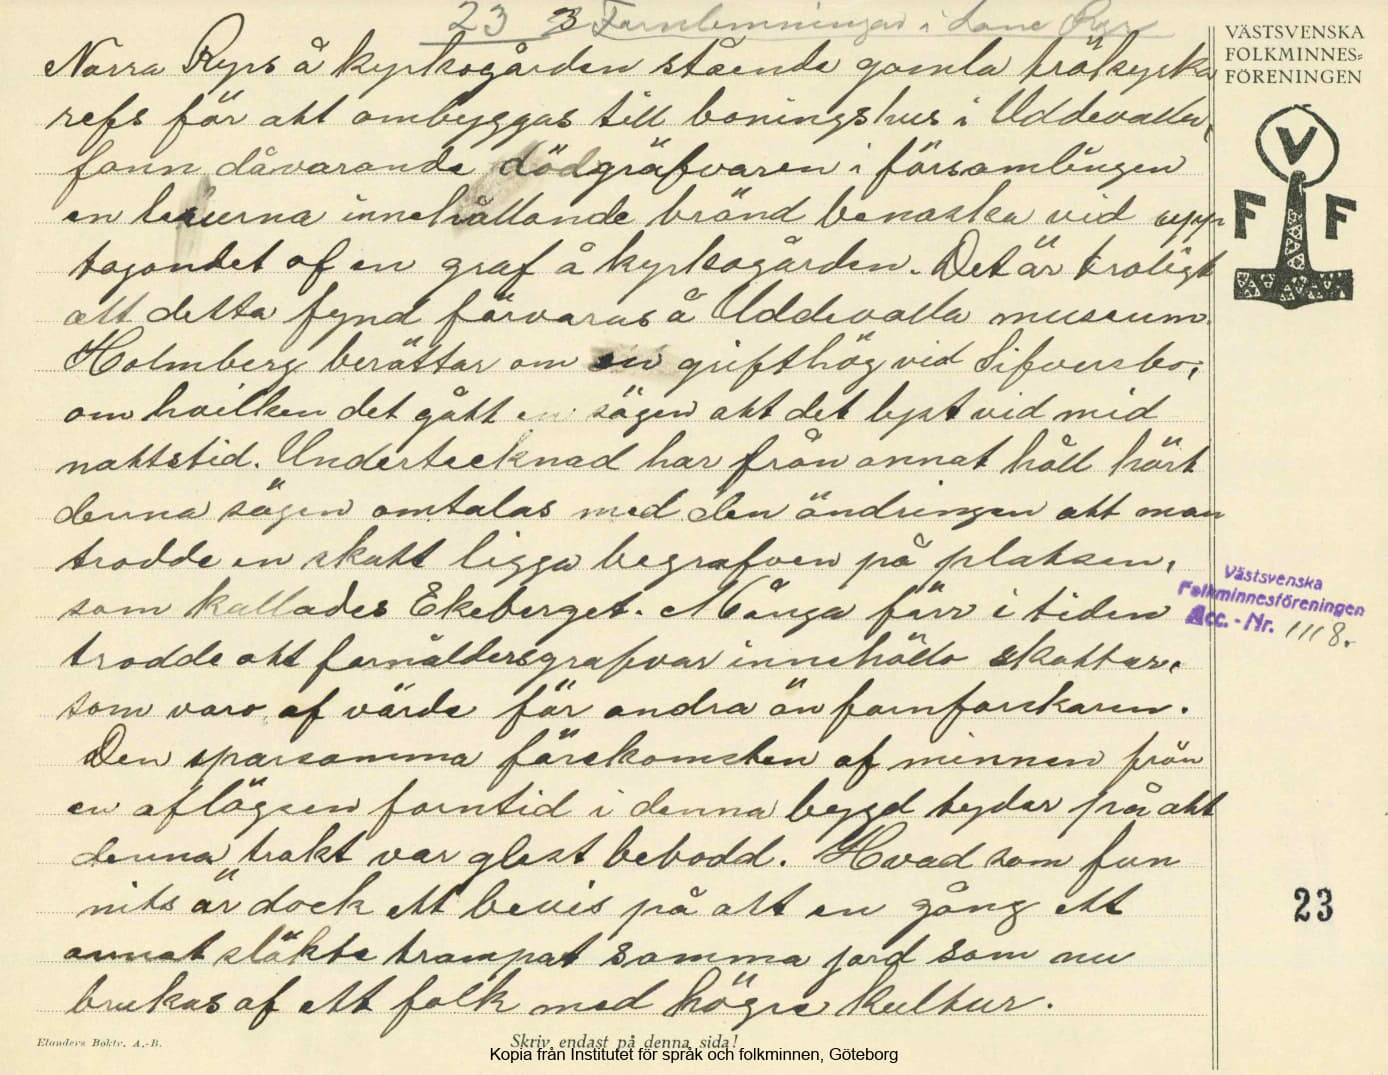 23 3 Fornlemningar i Lane Ryr
VÄSTSVENSKA
FOLKMINNES=
FÖRENINGEN
Norra Ryrs å kyrkogården stående gamla träkyrka
refs för att ombyggas till boningshus i Uddevalla,
fann dåvarande dödgräfvaren i församlingen
en lerurna innehållande bränd benaska vid upp
tagandet af en graf å kyrkogården. Det är troligt
att detta fynd förvaras å Uddevalla museum.
Holmberg berättar om en grifthög vid Sifversbo,
om hvilken det gått en sägen att det lyst vid mid
nattstid. Undertecknad har från annat håll hört
denna sägen omtalas med den ändringen att man
trodde en skatt ligga begrafven på platsen,
som kallades Ekeberget. Många förr i tiden
trodde att fornåldersgrafvar innehöllo skatter,
som voro af värde för andra än fornforskaren.
Den sparsamma förekomsten af minnen från
en aflägsen forntid i denna bygd tyder på att
denna trakt var glest bebodd. Hvad som fun
nits är dock ett bevis på att en gång ett
annat släkte trampat samma jord som nu
brukas af ett folk med högre kultur.
V
F F
Västsvenska
Folkminnesföreningen
Acc. - Nr. 1118.
23
Elanders Boktr. A.-B.
Skriv endast på denna sida!
Kopia från Institutet för språk och folkminnen, Göteborg